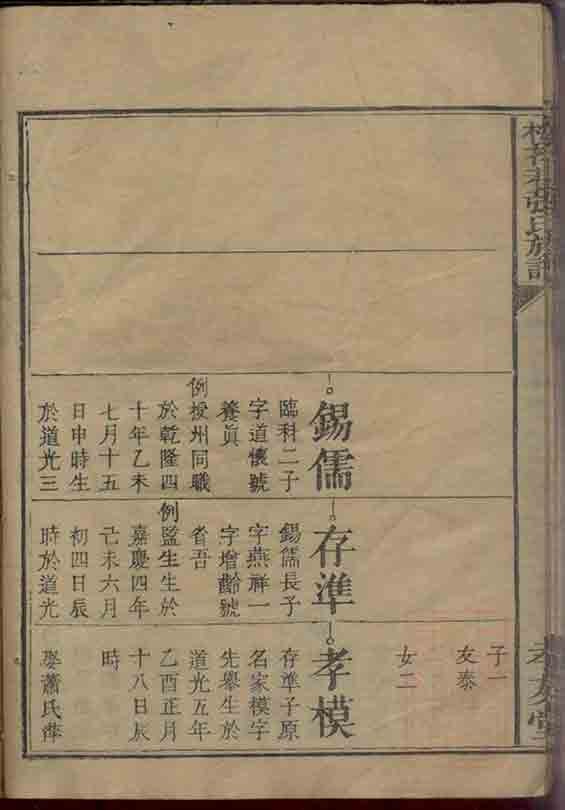 張氏族譜
孝友堂
錫儒
臨科二子
字道懷號
養眞
例授州同職
於乾隆四
十年乙未
七月十五
日申時生
於道光三
存準
錫儒長子
字燕祥一
字增齡號
省吾
例監生生於
嘉慶四年
己未六月
初四日辰
時於道光
子一
友泰
女二
孝模
存準子原
名家模字
先舉生於
道光五年
乙酉正月
十八日辰
時
娶蕭氏萍